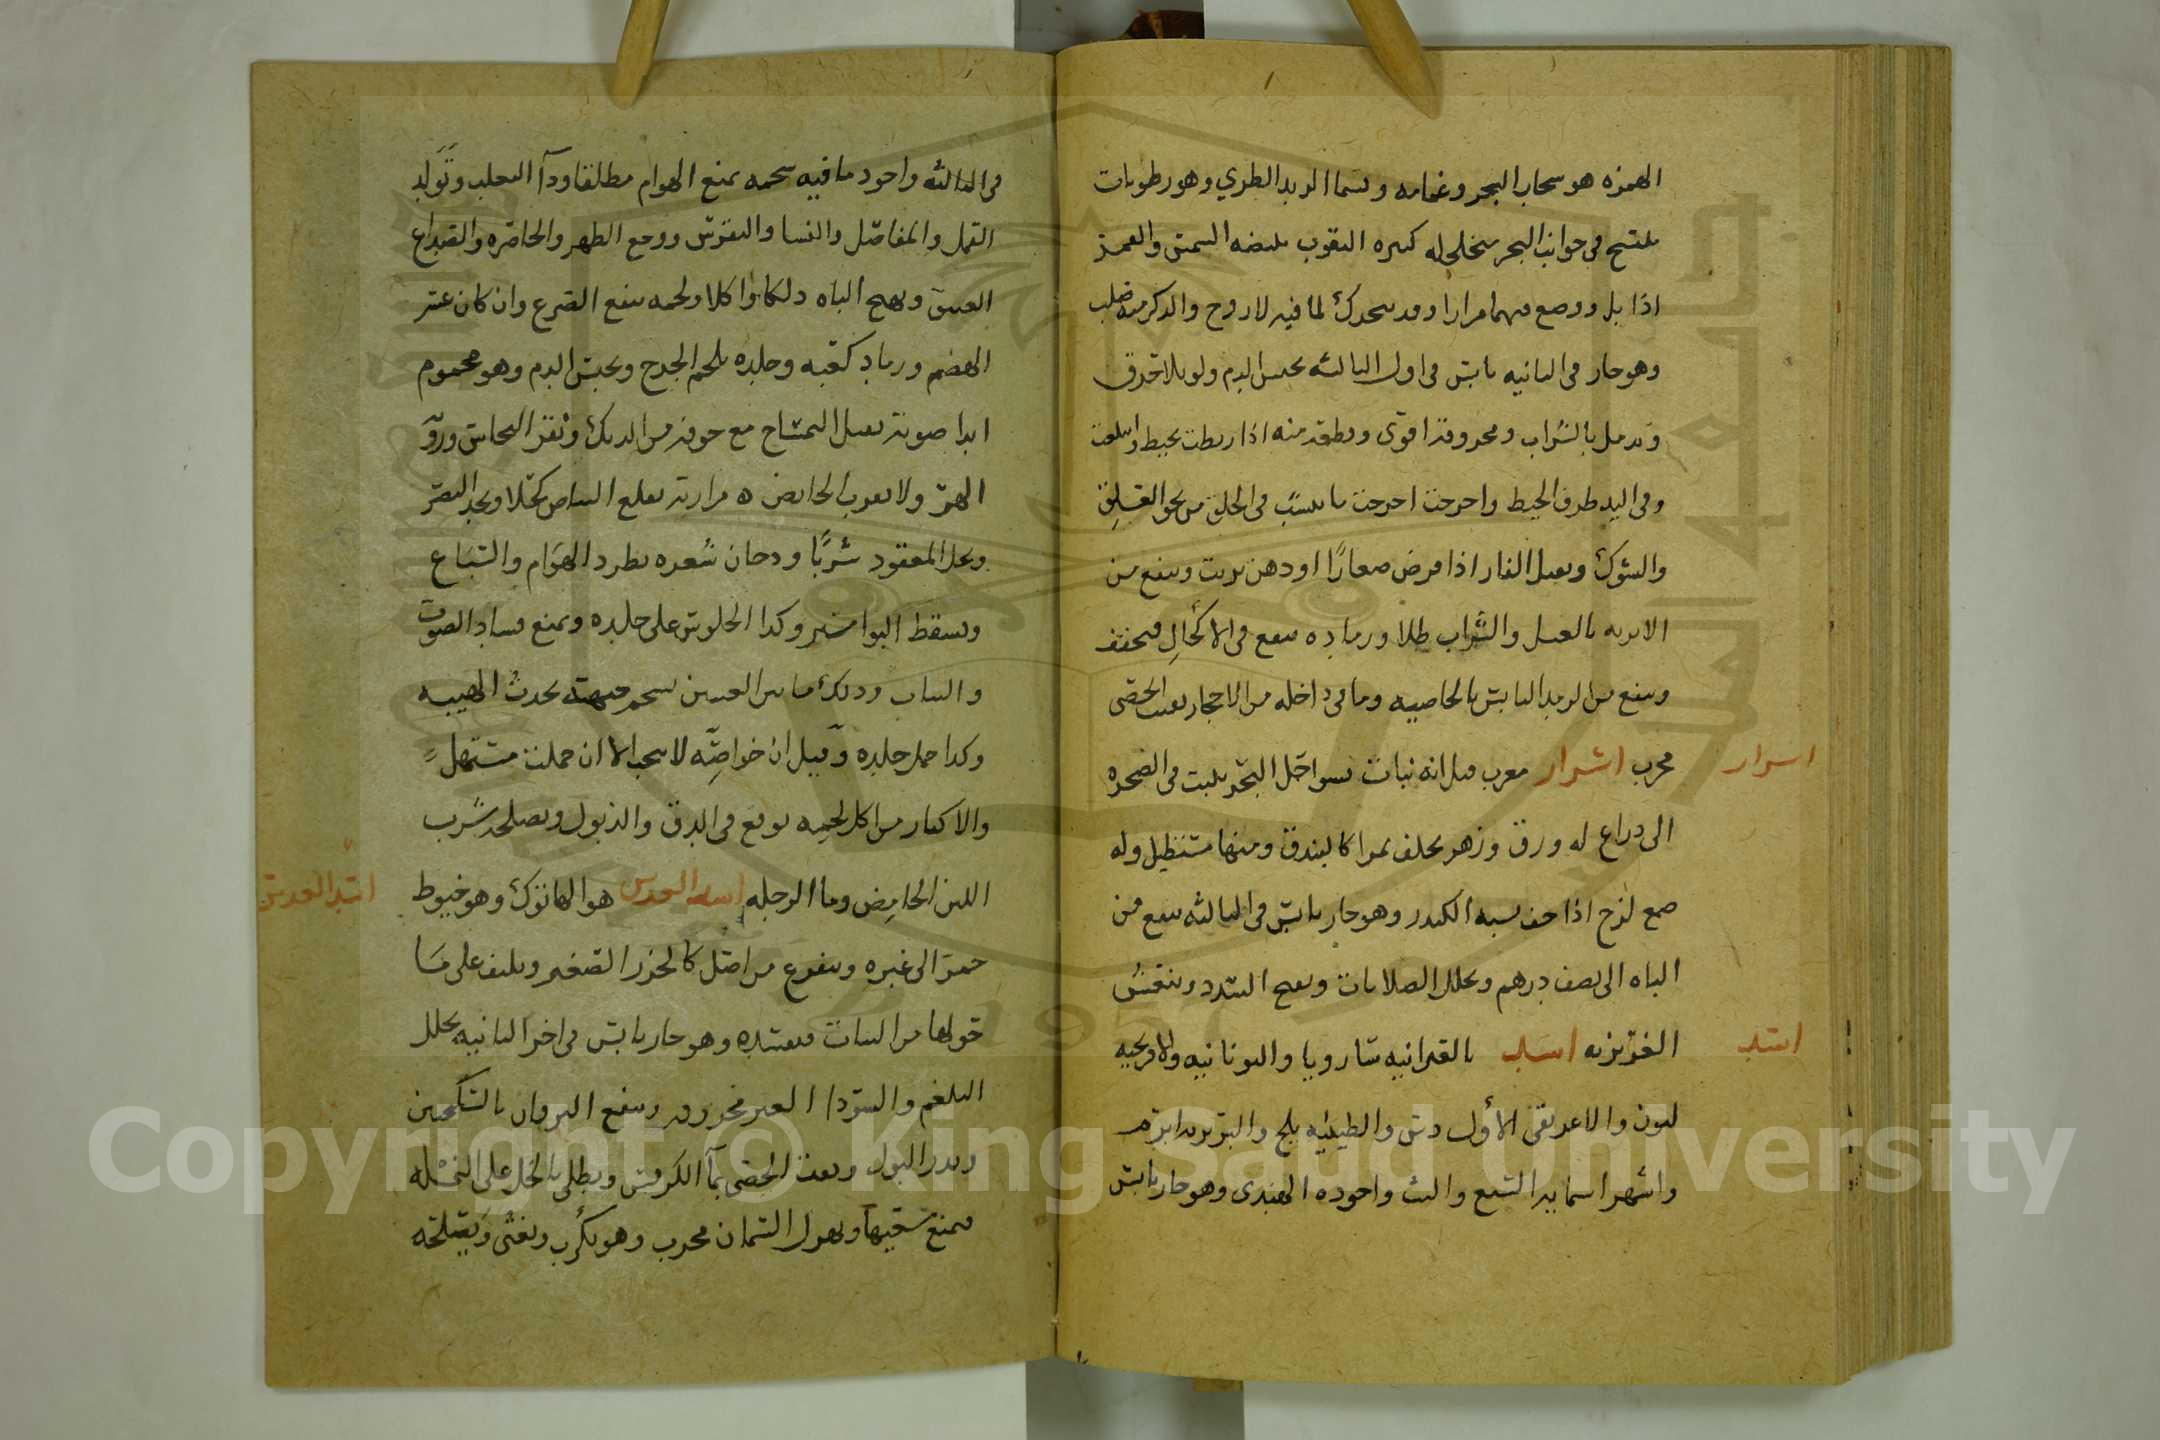 الهمزه هو سحاب البحر وغمامه ويسما الزبد الطري وهو رطوبات
تنتسج في جوانب البحر متخلخله كثيره الثقوب
اذا بل ووضع منهما مرارا وقد يتحرك لما فيه لا روح والذكر منه صلب
وهو حار في الثانيه يابس في اول الثالثه يحبس الدم ولو بلا حرق
ويدمل بالشراب ومحروقه اقوى وقطعه منه اذا ربطت بخيط وابتلعت
وفي اليد طرف الخيط واخرجت اخرجت ما ينشب في الحلق من نحو العلق
والشوك ويقتل الفار اذا قرض صغارا او دهن بزيت وينفع من
الابريه بالعسل والشراب طلا ورماده ينفع في الاكحال فيجفف
وينفع من الرمد اليابس بالخاصيه وما في داخله من الاحجار يفتت الحصى
مجرب اشرار معرب قيل انه نبات بسواحل البحر ينبت في الصخره
اسرار
الى ذراع له ورق وزهر يخلف ثمرا كالبندق ومنها مستطيل وله
صمغ لزج اذا جف يشبه الكندر وهو حار يابس في الثالثه ينفع من
الباه الى نصف درهم ويحلل الصلابات ويفتح السدد وينعش
الغريزيه اسد بالعبرانيه ساروبا واليونانيه
اسد
ليون والاغريقى الاول دس والطينيه بلج والبربريه ايزم
واشهر اسمايه السبع والليث واجوده الهندى وهو حار يابس
في الثالثه واجود ما فيه شحمه يمنع الهوام مطلقا ودا الثعلب وتولد
القمل والمفاصل والنسا والنقرس ووجع الظهر والخاصره والصداع
العتيق ويهيج الباه دلكا واكلا ولحمه ينفع الصرع وان كان عسر
الهضم ورماد كعبه وجلده يلحم الجرح ويحبس الدم وهو محموم
ابدا صوته يقتل التمساح مع خوفه من الديك ونقر النحاس ورو
الهر ولا يقرب الحايض ه مرارته تقلع البياض كحلا ويحد البصر
ويحل المعقود شربا ودخان شعره يطرد الهوام والسباع
ويسقط البواسير وكذا الجلوس على جلده ويمنع فساد الصوف
والثياب ودلك ما بين العينين بشحم جبهته يحدث الهيبه
وكذا حمل جلده وقيل ان خواصه لا تنجب الا ان حملت مستهل
والاكثار من اكل لحمه يوقع في الدق والذبول ويصلحه شرب
اللبن الحامض وما الرجله اسد العدس هو الهاتوك وهو خيوط
اسد العدس
حمر الى غبره ويتفرع من اصل كالجزر الصغير ويلتف على ما
حولها من النبات فيفسده وهو حار يابس في اخر الثانيه يحلل
البلغم والسودا الغير محروقه وينفع اليرقان بالسكنجبين
ويدر البول ويفتت الحصى بما الكرفس ويطلى بالخل على النمله
فيمنع سعيها ويهزل السمان مجرب وهو يكرب ويغثى ويصلحه
Copyright © King Saud University